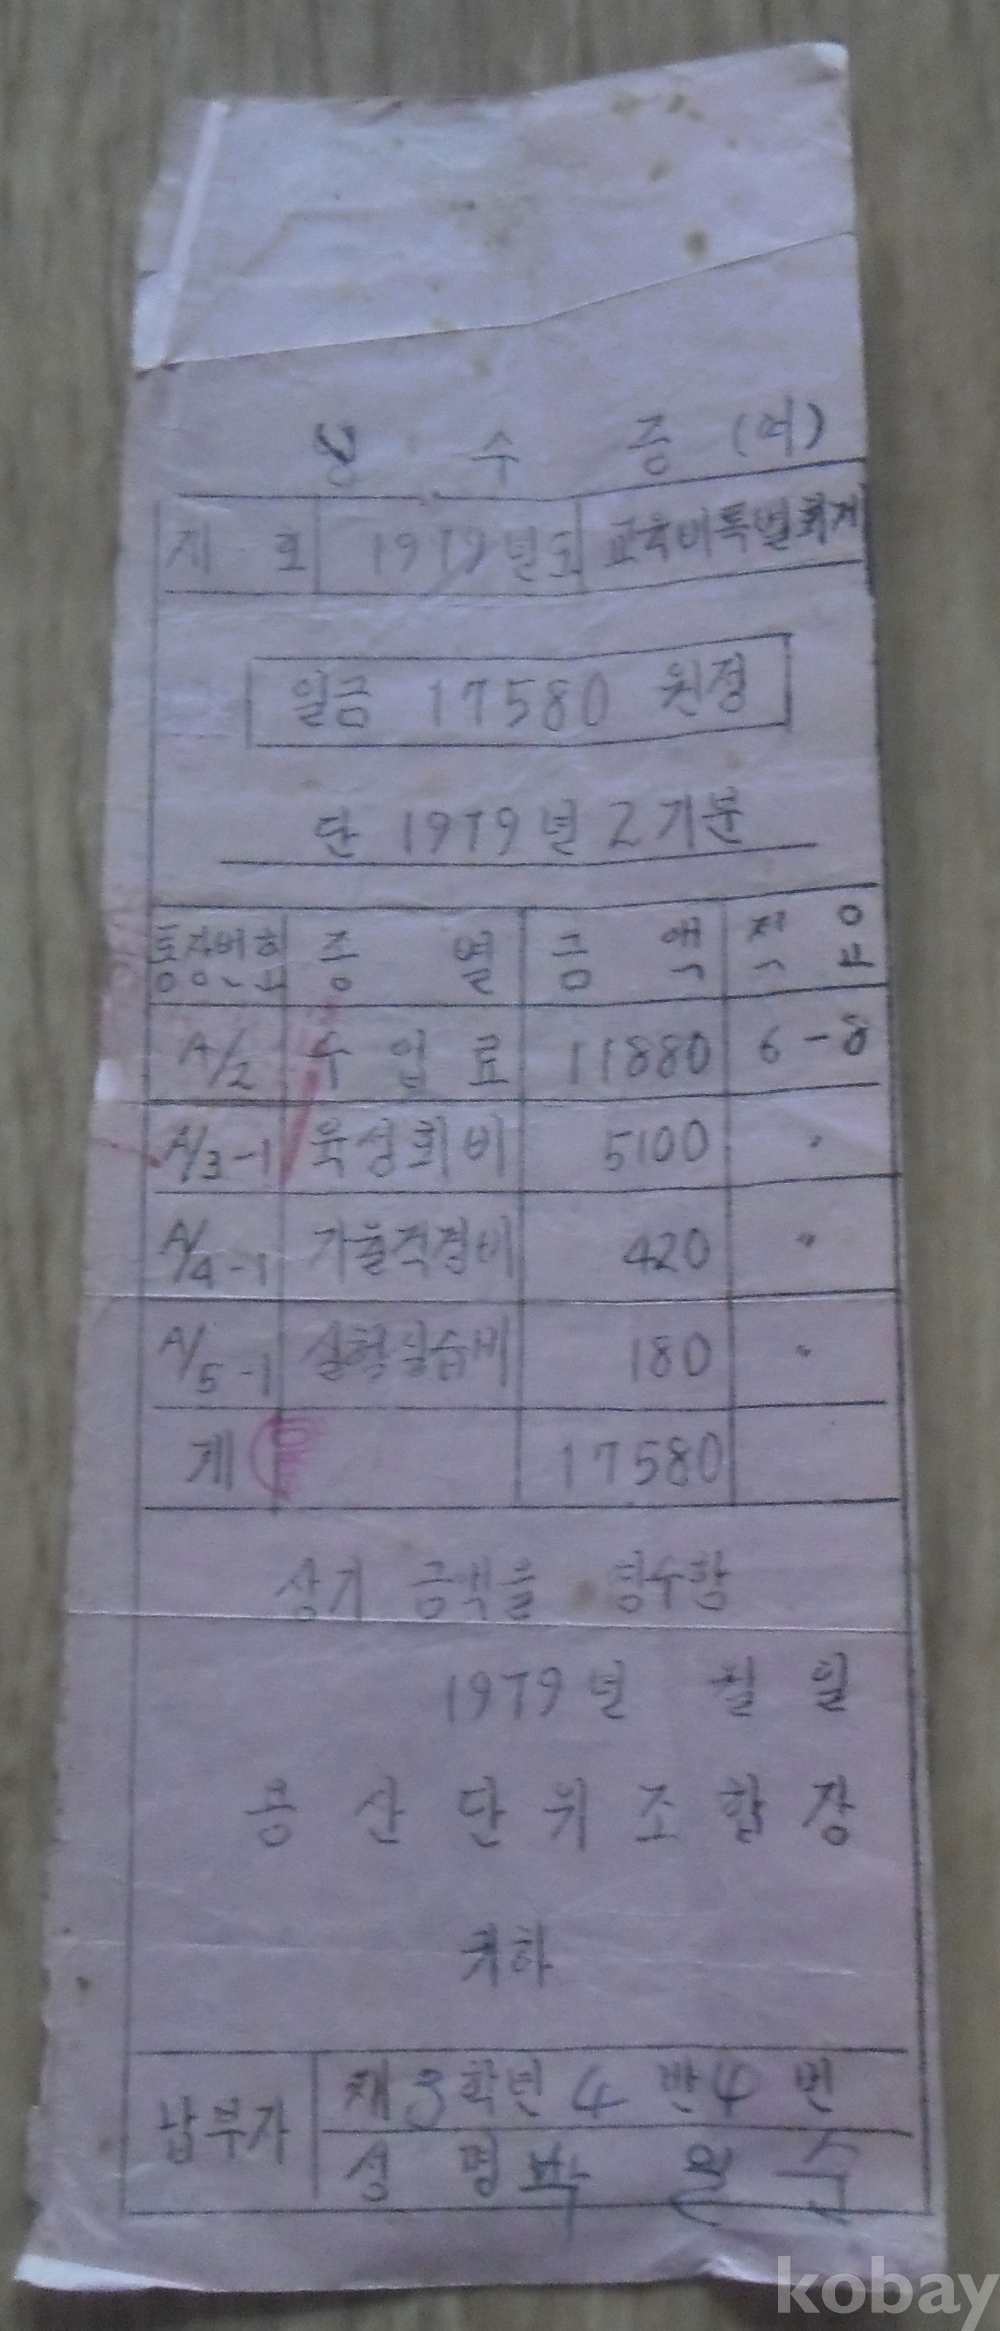 영 수 증 (여)
제 호 1979년도 교육비특별회계
일금 17580 원정
단 1979년 2기분
통장번호 종별 금액 적요
A/2 수업료 11880 6-8
A/3-1 육성회비 5100 〃
A/4-1 가출적경비 420 〃
A/5-1 실험실습비 180 〃
계 17580
상기 금액을 영수함
1979년 월 일
용산단위조합장
귀하
납부자 제3학년 4반 4번
성 명 박
kobay